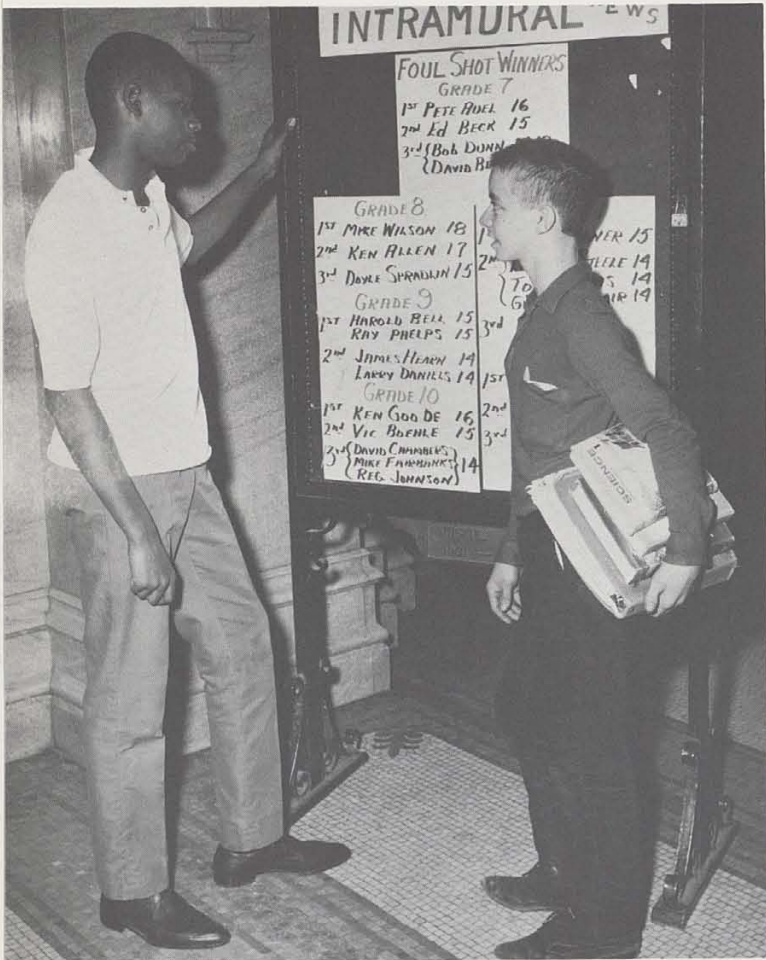 INTRAMURAL NEWS
FOUL SHOT WINNERS
GRADE 7
1ST PETE RUEL 16
2nd Ed BECK 15
3rd {Bob DUNN
{DAVID BE
GRADE 8
1ST MIKE WILSON 18
2nd KEN ALLEN 17
3rd DOYLE SPRADLIN 15
GRADE 9
1ST HAROLD BELL 15
RAY PHELPS 15
2nd JAMES HEARN 14
LARRY DANIELS 14
GRADE 10
1ST KEN GOODE 16
2nd VIC BOEHLE 15
3rd {DAVID CHAMBERS
MIKE FAIRBANKS} 14
REG JOHNSON
NER 15
2nd TEELE 14
TO S 14
G AIR 14
3rd
1ST
2nd
3rd
SCIENCE